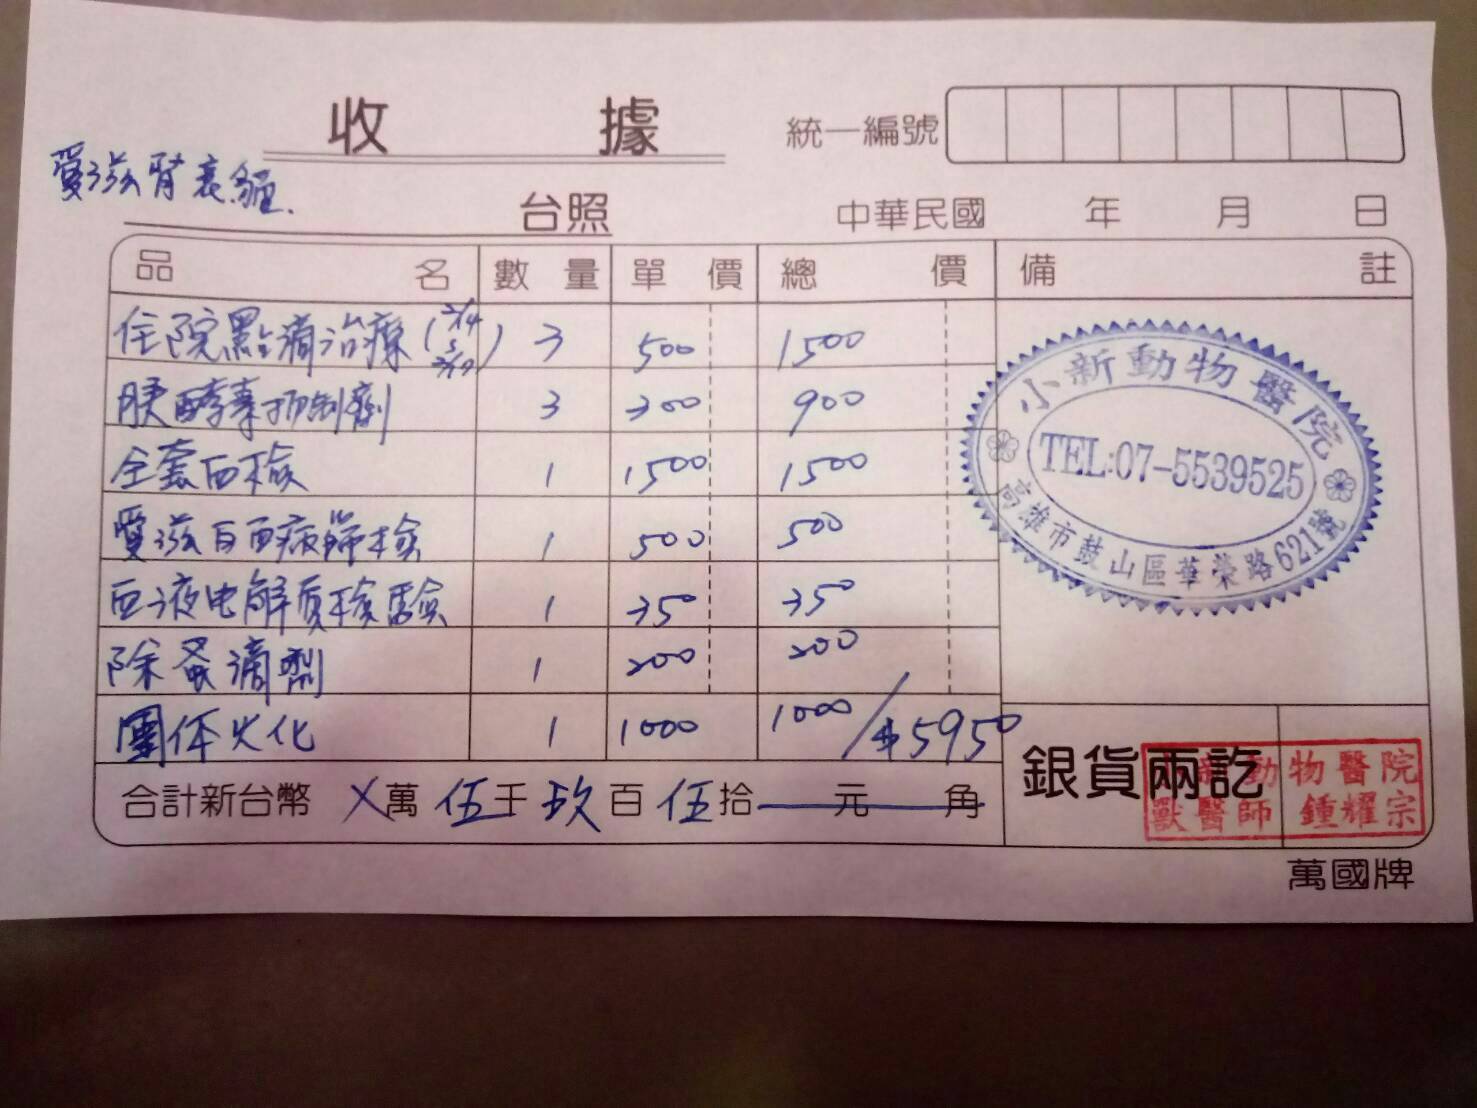 收據
統一編號
愛滋腎衰貓.
台照
中華民國 年 月 日
品名 數量 單價 總價 備註
住院點滴治療(2/14~2/17) 3 500 1500
胰酵素抑制劑 3 300 900
全套血檢 1 1500 1500
愛滋白血病篩檢 1 500 500
血液电解質檢驗 1 350 350
除蚤滴劑 1 200 200
團体火化 1 1000 1000 / $5950
小新動物醫院
TEL:07-5539525
高雄市鼓山區華榮路621號
合計新台幣 X萬 伍千 玖百 伍拾 元 角
銀貨兩訖
小新動物醫院
獸醫師 鍾耀宗
萬國牌